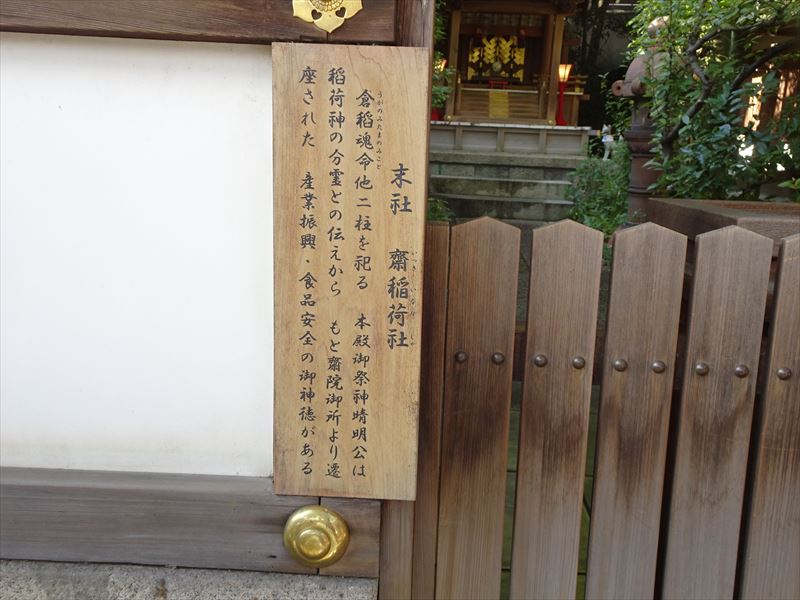 末社 齋稲荷社
いつき いなり しゃ
倉稲魂命他二柱を祀る 本殿御祭神晴明公は
うがのみたまのみこと
稻荷神の分霊との伝えから もと齋院御所より遷
座された 産業振興・食品安全の御神徳がある